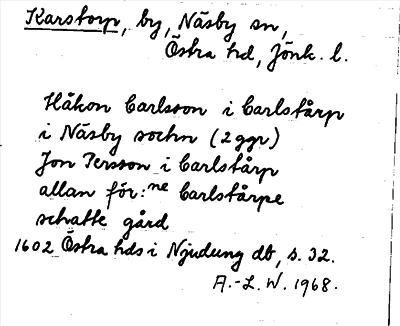 Karstorp, by, Näsby sn,
Östra hd, Jönk. l.
Håkon Carlsson i Carlstårp
i Näsby sochn (2 ggr)
Jon Persson i Carlstårp
allan för:ne Carlstårpe
schatte gård
1602 Östra hds i Njudung db, s. 32.
A.-L. W. 1968.